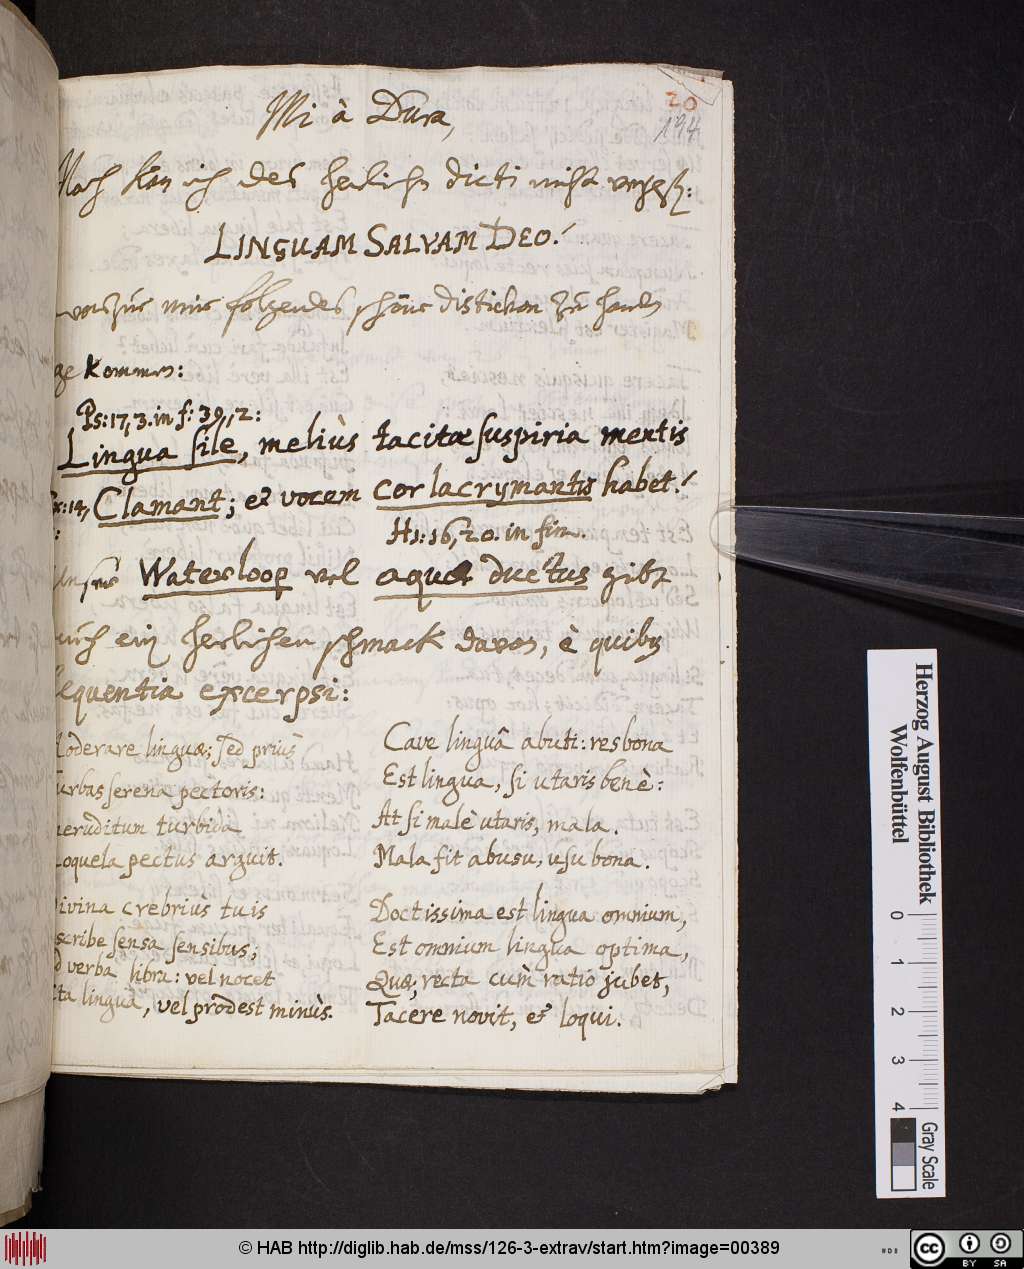 20
194
Mi à Dura,
Noch kan ich des herlichen dicti nicht
LINGUAM SALVAM DEO!
mir folgendes schöne distichon zu handen
ge kommen:
Ps: 17, 3. in f: 39, 2:
Lingua sile, meliùs tacitæ suspiria mentis
14, Clamant; et vocem cor lacrymantis habet!
H1: 16, 20. in fin.
Waterloop vel aquæ ductus gibt
auch ein herlichen schmack davon, è quibus
sequentia excerpsi:
Moderare linguæ; sed priùs
Turbas serena pectoris:
neruditum turbida
Loquela pectus arguit.
Divina crebriùs tuis
scribe sensa sensibus;
d verba libra: vel nocet
ita lingua, vel prodest minùs.
Cave linguâ abuti: res bona
Est lingua, si utaris benè:
At si malè utaris, mala.
Mala fit abusu, usu bona.
Doctissima est lingua omnium,
Est omnium lingua optima,
Quæ, recta cùm ratio jubet,
Tacere novit, et loqui.
Herzog August Bibliothek
Wolfenbüttel
0 1 2 3 4
Gray Scale
© HAB http://diglib.hab.de/mss/126-3-extrav/start.htm?image=00389
cc
BY SA